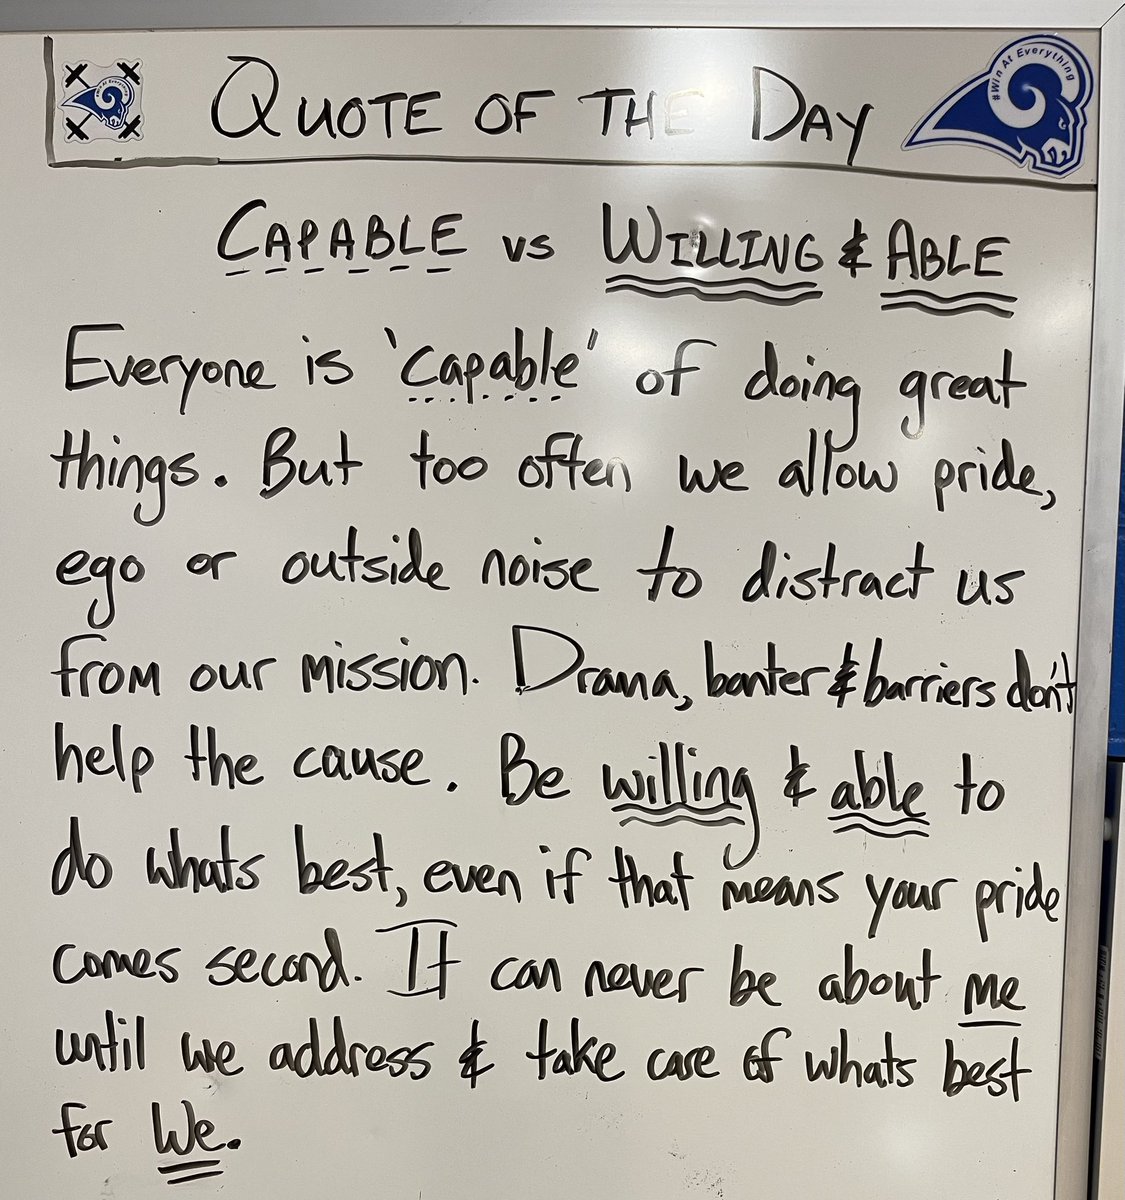 #Win At Everything
QUOTE OF THE DAY
#Win At Everything
CAPABLE vs WILLING & ABLE
Everyone is 'capable' of doing great
things. But too often we allow pride,
ego or outside noise to distract us
from our mission. Drama, banter & barriers don't
help the cause. Be willing & able to
do whats best, even if that means your pride
comes second. It can never be about me
until we address & take care of whats best
for We.